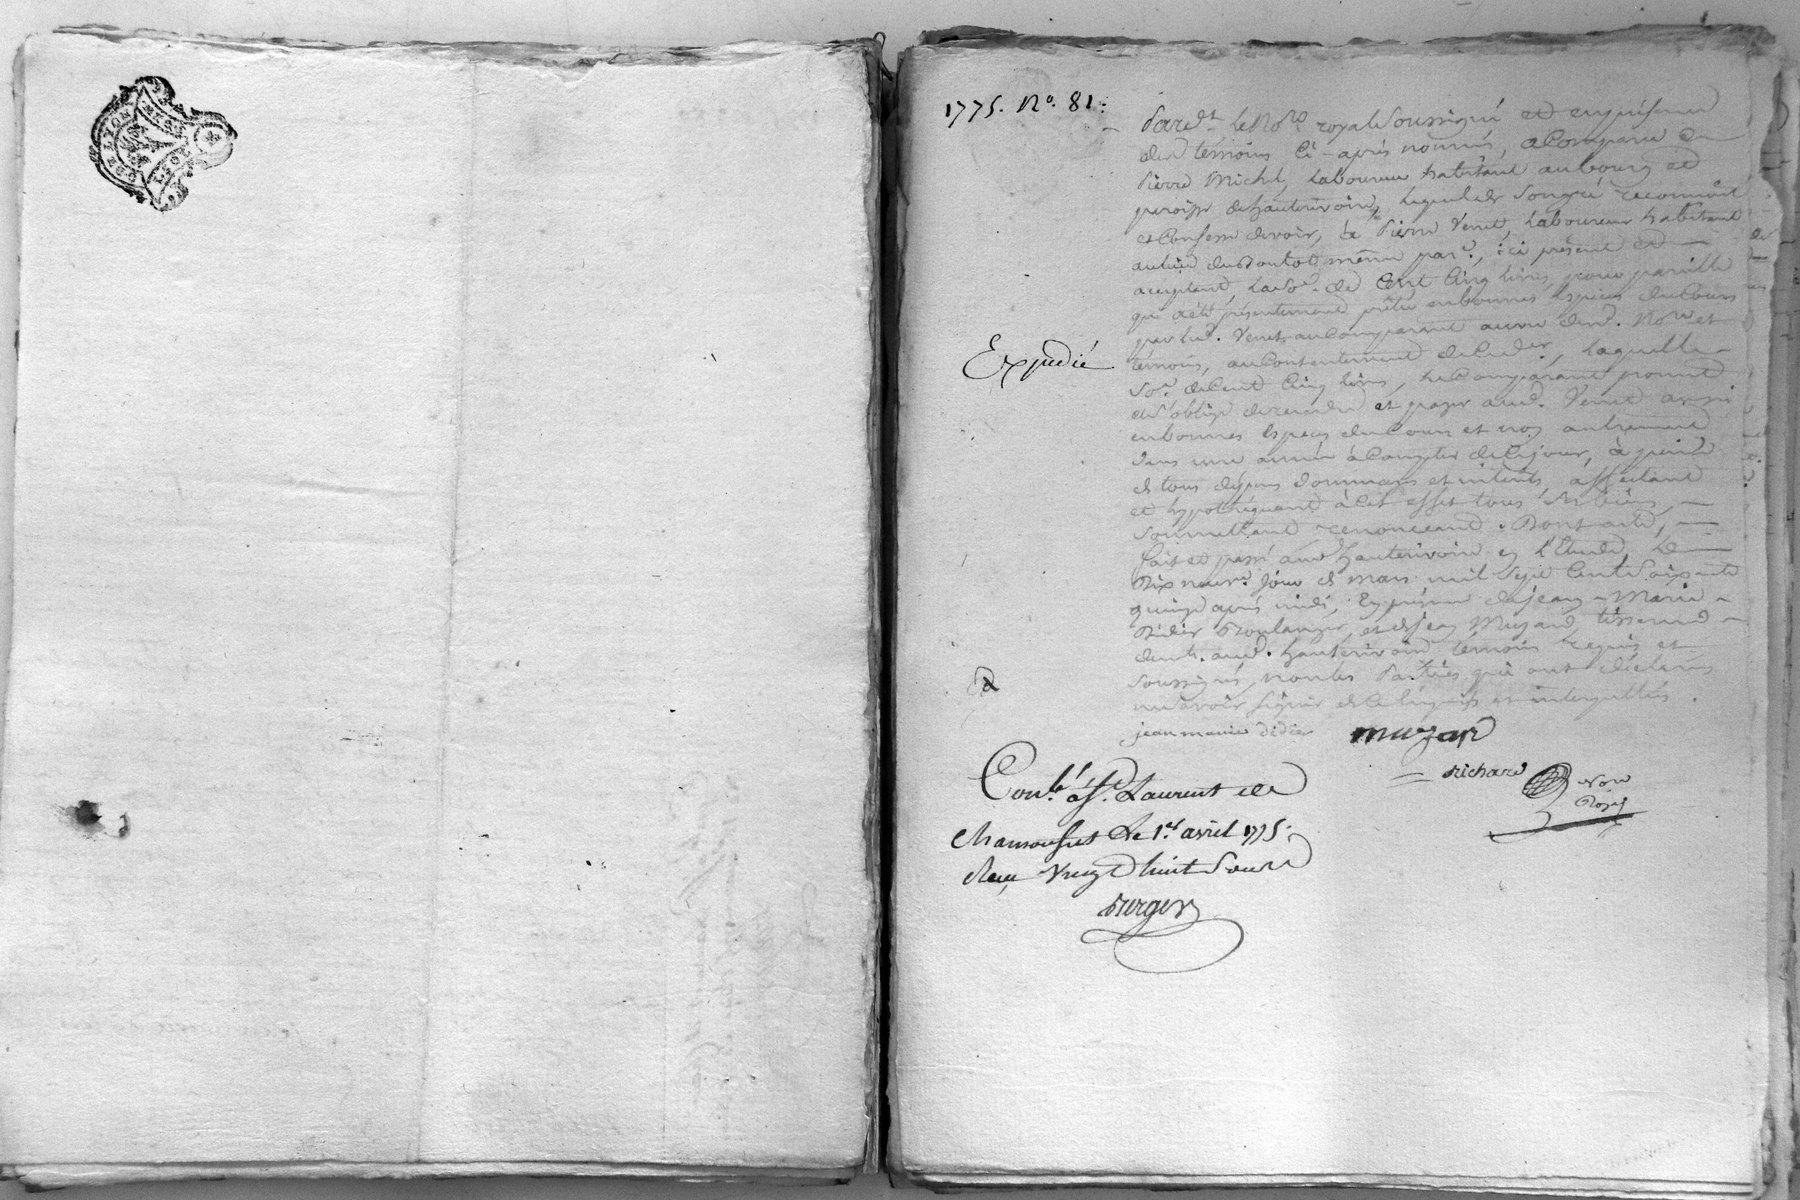 1775. No. 81.
Pard.t le No.re royal Soussigné et en présence
des temoins Ci-aprés nommés, a Comparu
Pierre Michel, Laboureur habitant au bourg et
paroisse de hauterivoire, Lequel de Son gré reconnoit
et Confesse devoir, à Pierre Venet, Laboureur habitant
au lieu du même par.e, ici présent et
acceptant, La So.e de Cent Cinq livres, pour pareille
qui a été présentement prêtée en bonnes Espèces du Cours
par led. Venet au Comparant au vu desd. No.re et
témoins, au Contentement de Ce der.r, Laquelle
So.e de Cent Cinq livres, Le Comparant promet
et S'oblige de rendre et payer aud. Venet aussi
en bonnes Espèces du Cours et non autrement
dans une année à Compter de Ce jour, à peine
de tous depens dommages et intérêts, affectant
et hypothéquant à Cet effet tous Ses biens,
Soumettant renonceant. Dont acte,
fait et passé aud. hauterivoire en l'Etude, Le
Dix neuv.e jour de mars mil Sept Cent Soixante
quinze après midi, En présence de jean Marie
Didier Boulanger, et de jean Muzard tisserand
dem.t aud. hauterivoire, témoins requis et
Soussignés, non les Parties qui ont déclaré
ne Savoir Signer de Ce Enquises et interpellées.
Expedié
jean marie didier
muzard
Richard No.re Royal
Con.lé à S.t Laurent de
Chamousset Le 1.er avril 1775.
Reçu Vingt huit Sous
Berger